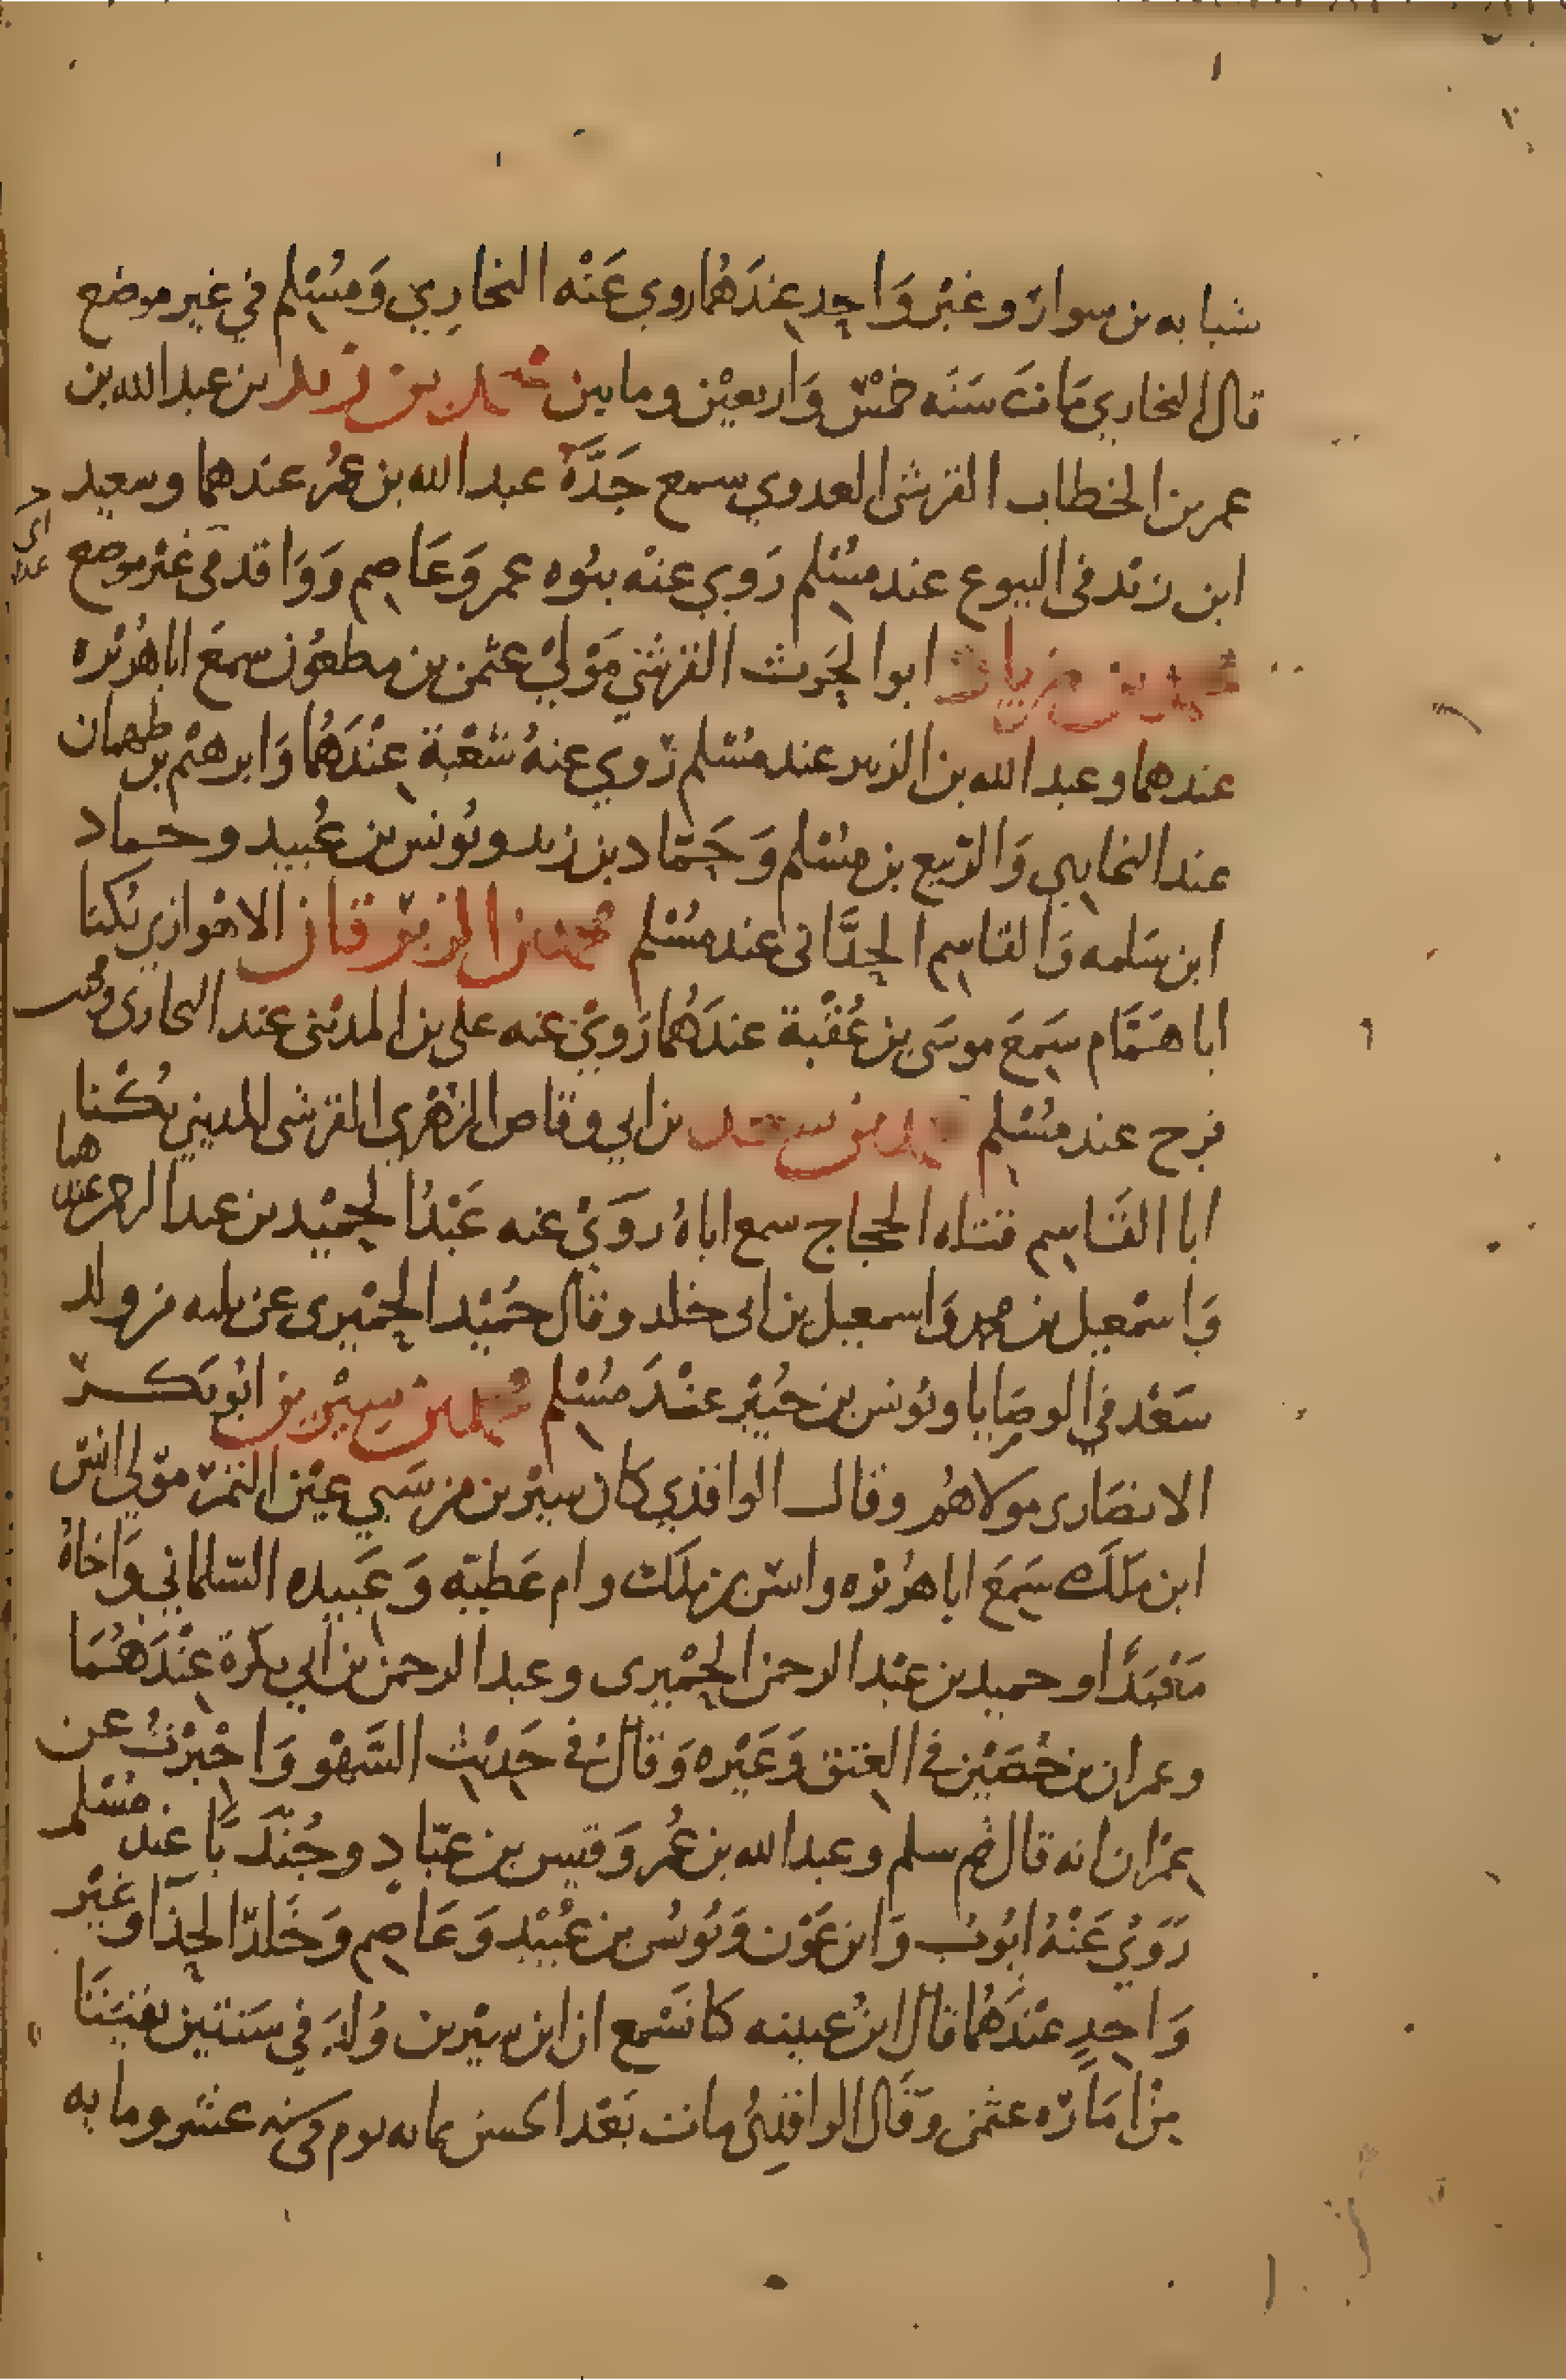 شبابه بن سوار وغير وَاحِدٍ عِندَهُما روي عَنْه البخارِي وَمُسْلِم في غير موضع
قال البخاري مَاتَ سَنَه خمْسٍ وَاربعيْن ومايين محمد بن زيد بن عبد الله بن
عمر بن الخطاب القرشى العدوي سمع جَدَّهُ عبد الله بن عُمَر عندهما وسعيد
ابن زيد فى البيوع عند مسْلم رَوي عنه بنُوه عمر وَعَاصِم وَوَاقد في غير موضع
محمد بن زياد ابوا الحرث القرشي مَوْلي عثمن بن مظعُون سمعَ اباهُريْره
عندهما وعبد الله بن الزبير عند مسْلم رَوي عنهُ شعْبة عِنْدَهُما وَابرهيْم بن طهمان
عند البخاري وَالرّبيع بن مسْلم وَحَمّاد بن زيد ويُونس بن عُبيد وحماد
ابن سَلمه وَالقاسِم الحِدَّانى عند مسْلم محمد بن الزبْرقان الاهْوازي يُكنا
ابا همَّام سَمِعَ موسَى بن عُقْبة عندَهُما رَوي عنه على بن المديْنى عند البخارى و
فرح عند مسْلم محمد بن سعد بن ابي وقاص الزهْري القرشى المديني يُكْنا
ابا القَاسِم قتله الحجاج سمع اباهُ روَي عنه عَبْدُ الحمِيْد بن عبد الرحمن عندهما
وَاسْمعيل بن محمد وَاسمعيل بن ابى خلد وقال حُمَيْد الحِمْيرى عن ثلثه من ولد
سَعْد في الوصَايا ويُونس بن جُبَيْر عنْدَ مسْلم محمد بن سِيْرين ابُو بَكر
الانصَارى مولاهُم وقال الواقدي كان سيْرين من سَبي عيْن التمْر مَوْلي انسْ
ابن ملَك سَمِعَ ابا هُريْره وانسْ بن ملَك وام عَطيّه وَعَبِيده السّلماني وَاخاهُ
مَعْبَدًا وحميد بن عبْد الرحمن الحِمْيرى وعبد الرحمن بن ابي بكرة عِنْدَهُمَا
وعمران بن حُصَيْن في العِتق وَغَيْره وَقال في حَدِيْث السَّهْو وَاخْبرْتُ عن
عِمْران انه قال ثم سلم وعبد الله بن عُمر وَقيس بن عبّادٍ وجُنْدَبًا عند مسْلم
رَوَي عَنْهُ ايُوبُ وَابن عَوْن وَيُونُس بن عُبَيْد وَعَاصِم وَخَلدّ الحِذاَ وغيْر
وَاحِدٍ عِنْدَهُما قال ابنُ عيينه كانَسْمع ان ابن سيْرين وُلِدَ في سَنتين بقيَتَا
مِنْ امَارَه عثمن وَقَال الواقِدِيُ مات بَعْد الحسن بمايه يوم في سنه عشر ومايه